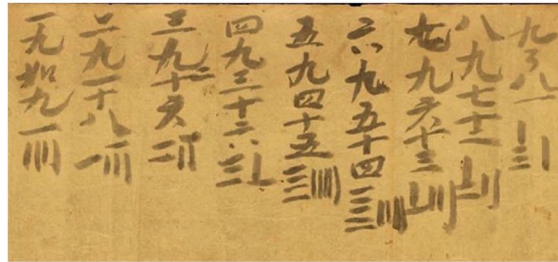 九々八一
八九七十二
七九六十三
六九五十四
五九四十五
四九三十六
三九二十七
二九一十八
一九如九